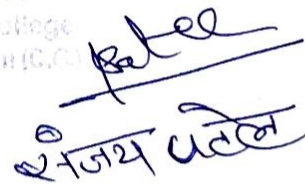 Patel
संजय पटेल